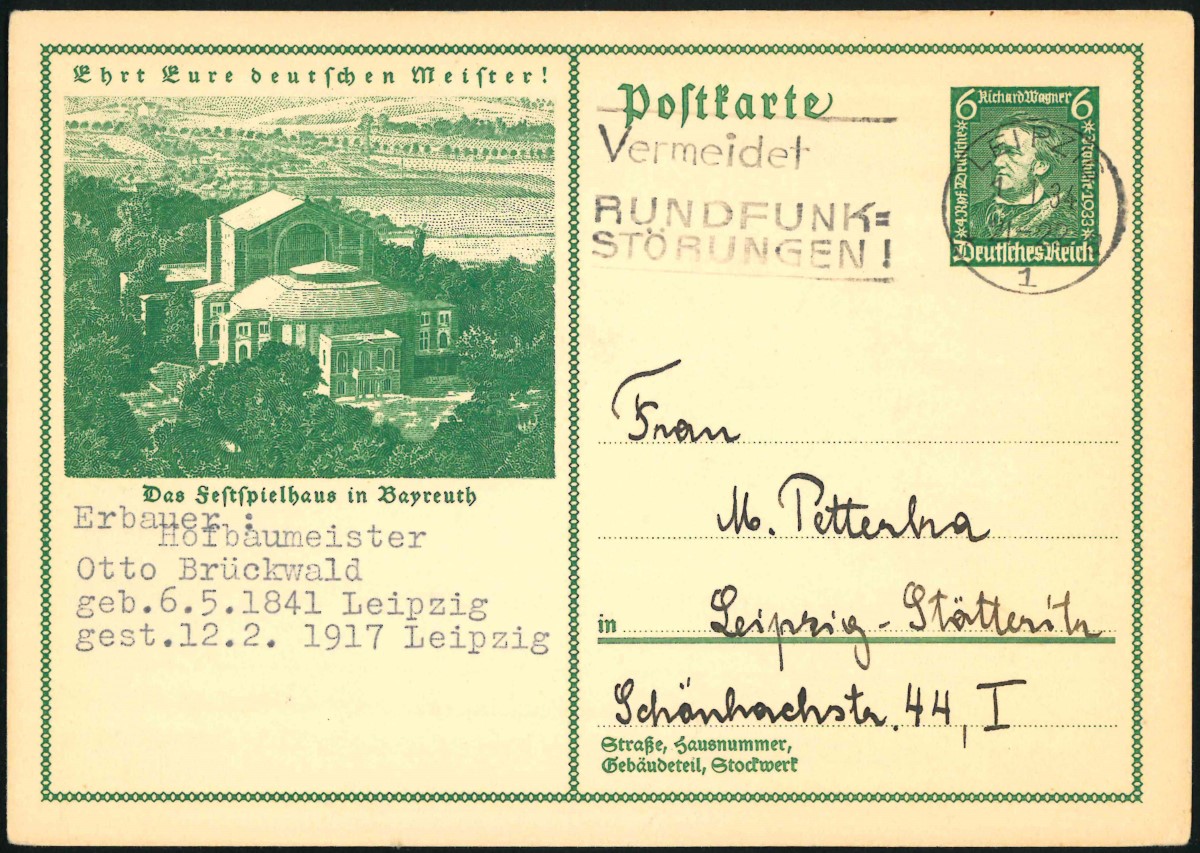 Ehrt Eure deutschen Meister!
Das Festspielhaus in Bayreuth
Erbauer :
Hofbaumeister
Otto Brückwald
geb.6.5.1841 Leipzig
gest.12.2. 1917 Leipzig
Postkarte
Vermeidet
RUNDFUNK=
STÖRUNGEN!
6 Richard Wagner 6
Deutsches Reich
LEIPZ
34
1
Frau
M. Petterka
in Leipzig-Stötteritz
Schönbachstr. 44, I
Straße, Hausnummer,
Gebäudeteil, Stockwerk